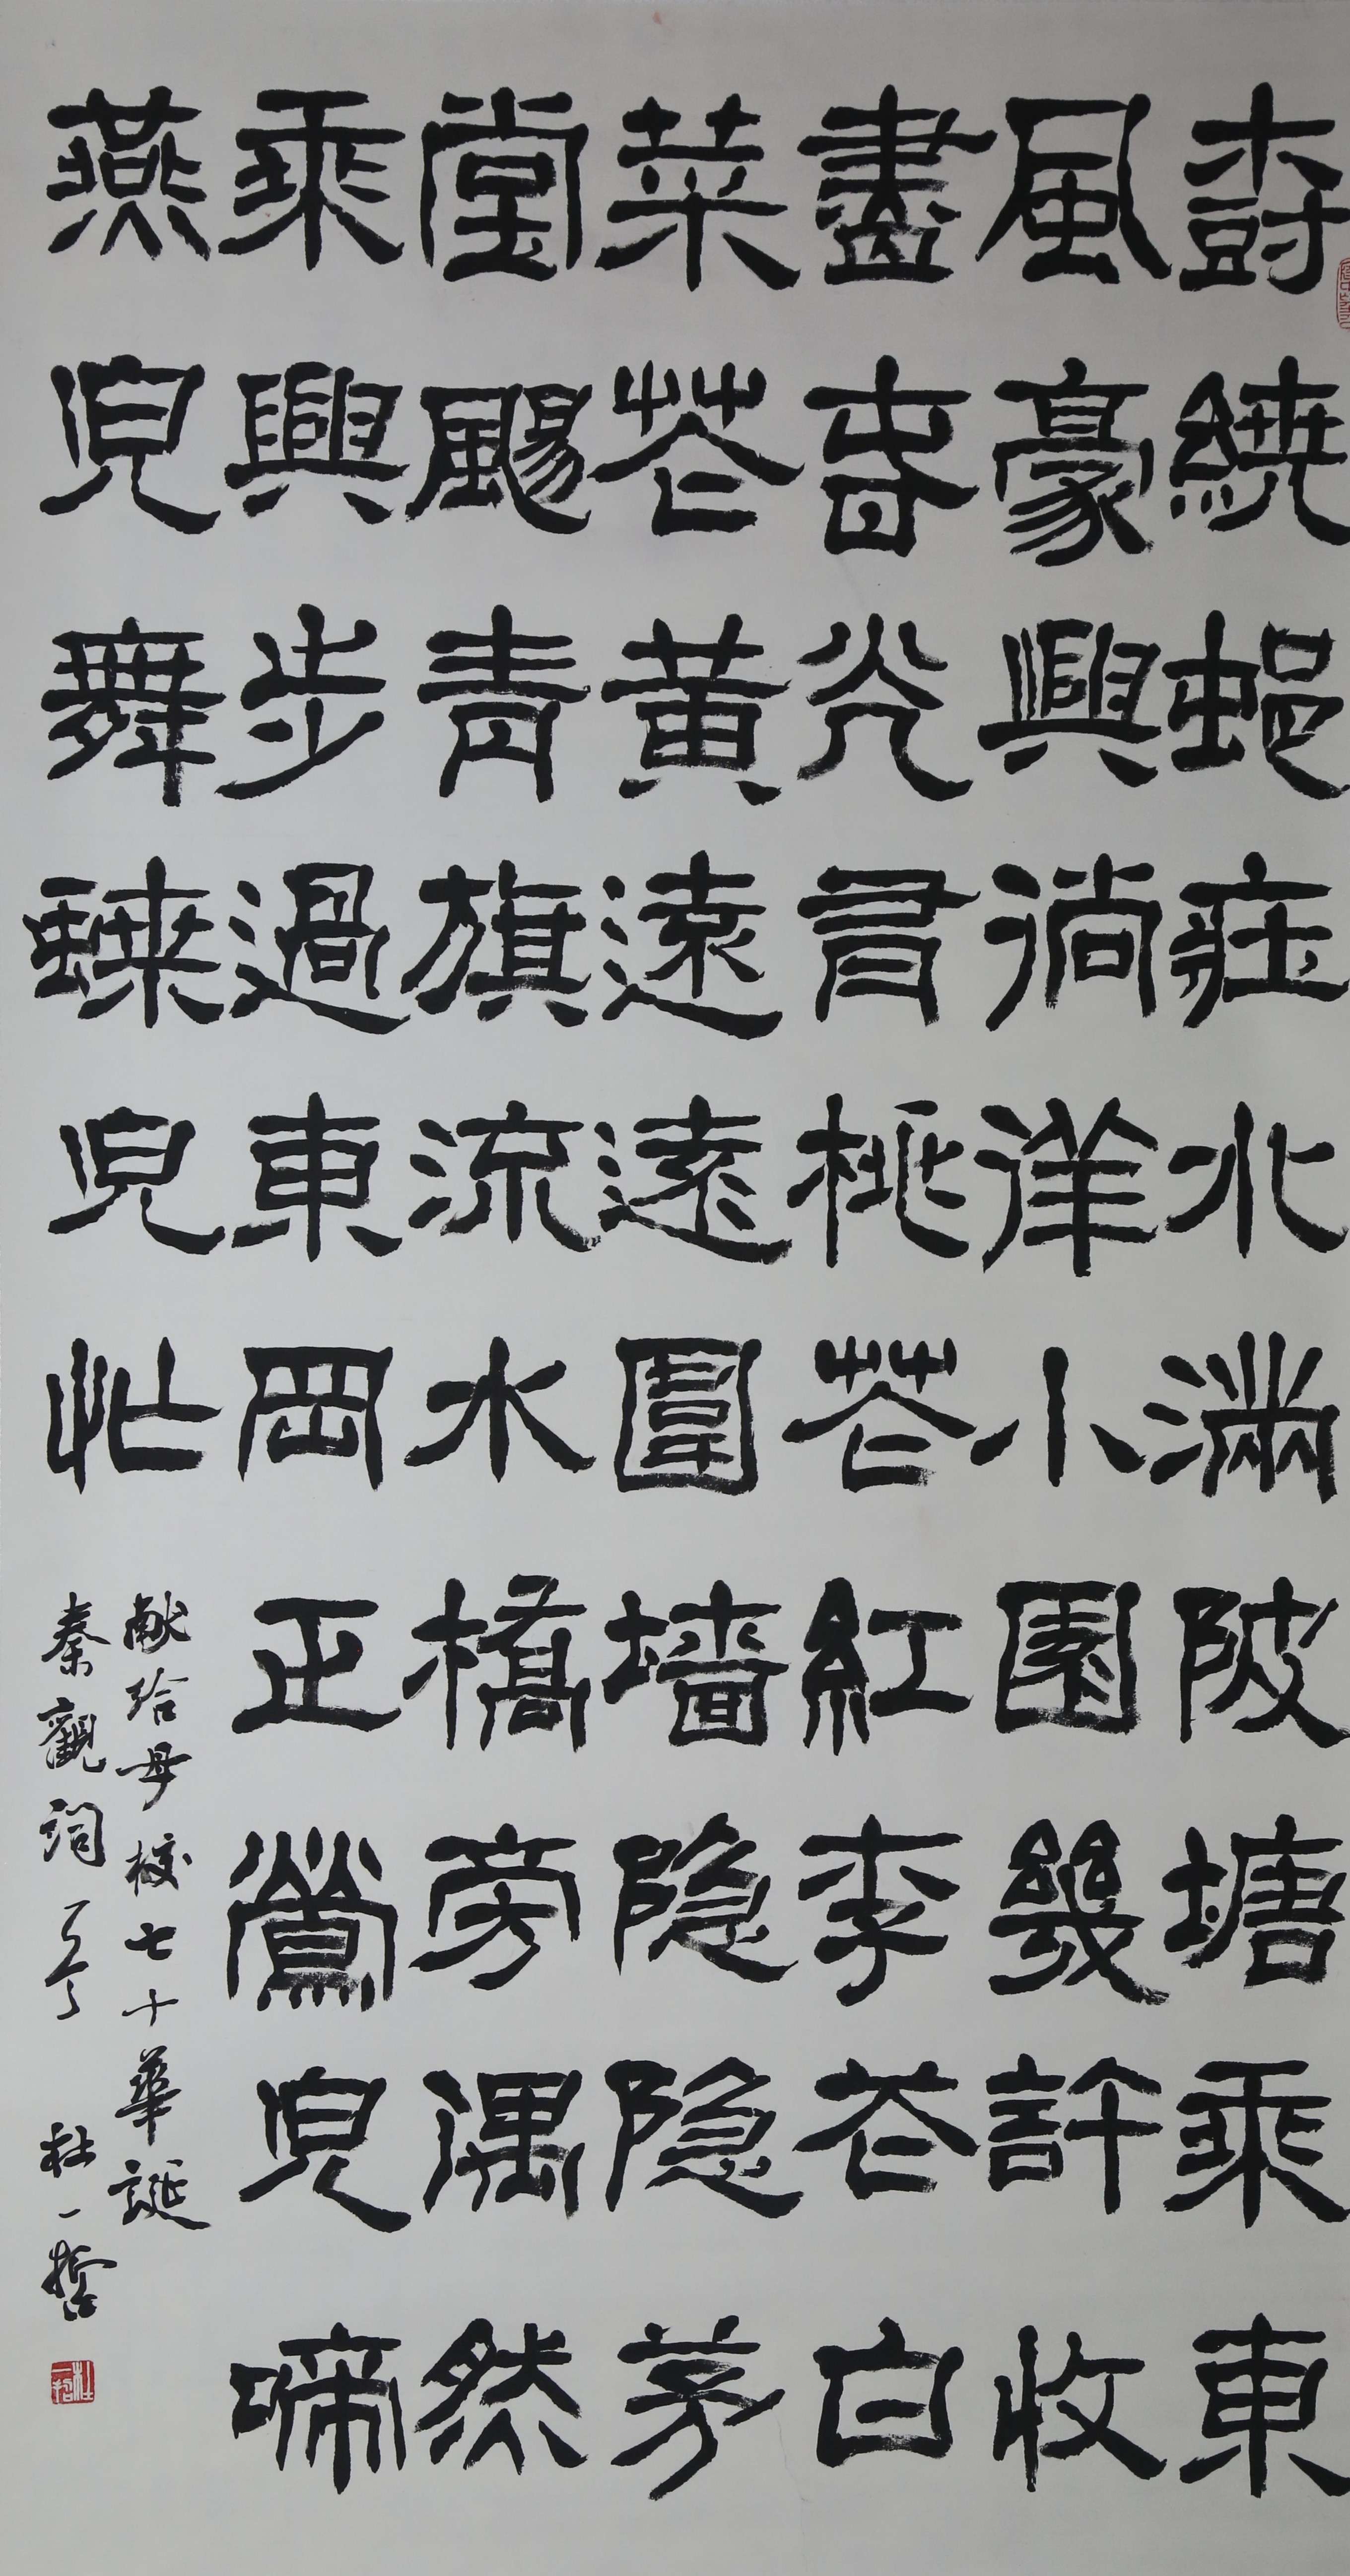 樹繞邨莊水滿陂塘乘東
風豪興徜徉小園幾許收
盡春光有桃花紅李花白
菜花黃遠遠圍墙隐隐茅
堂颺青旗流水橋旁偶然
乘興步過東岡正鶯兒啼
燕兒舞蝶兒忙
献给母校七十華誕
秦觀詞 杜一哲
杜一哲